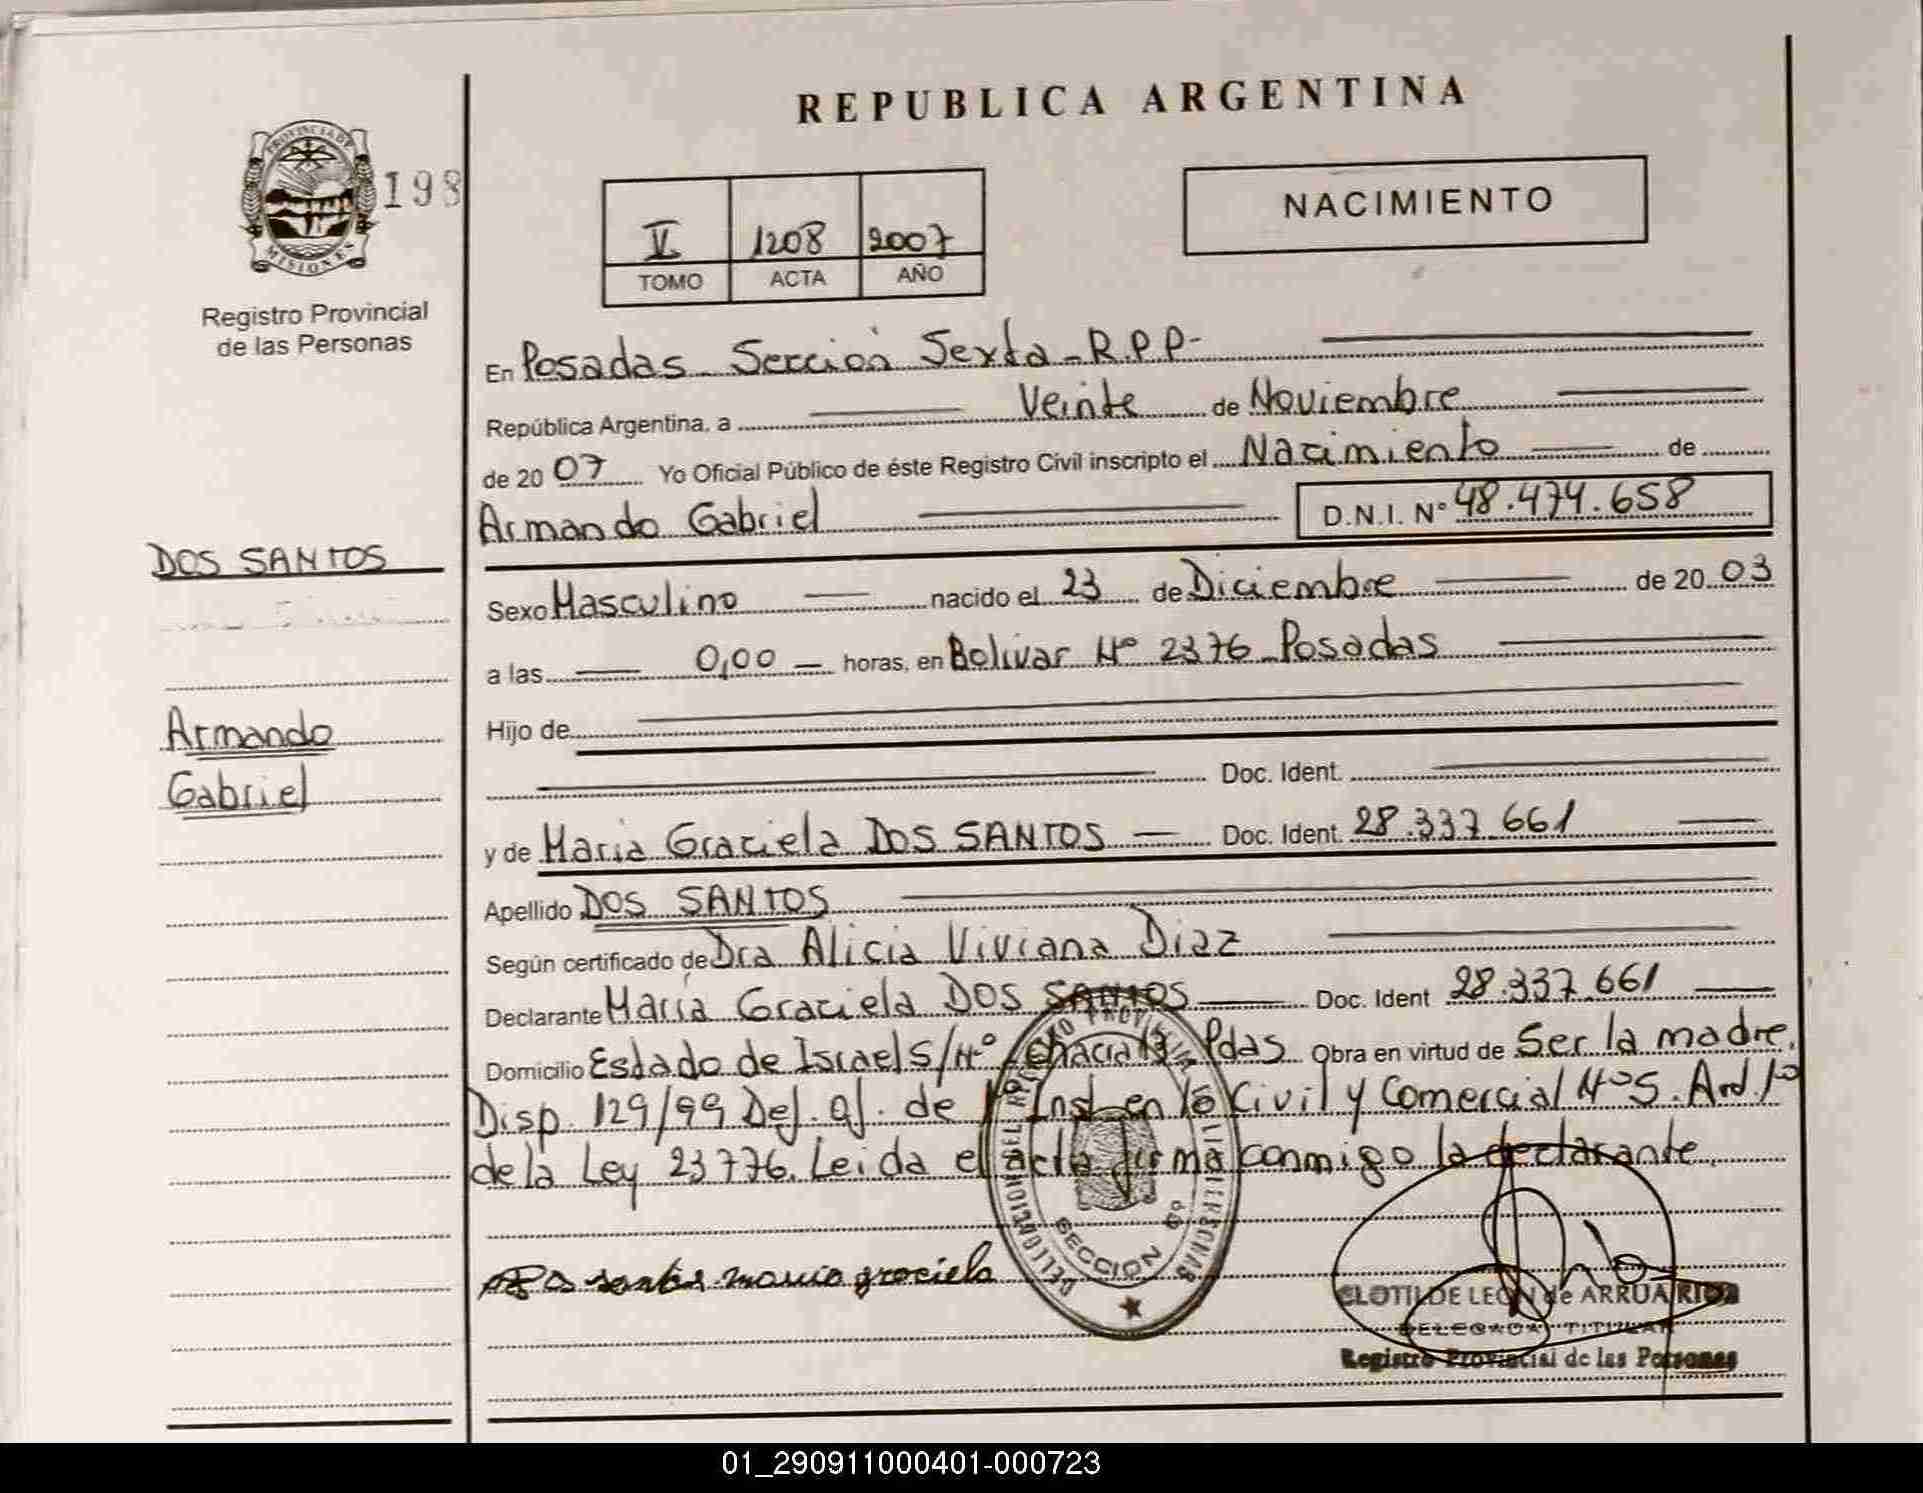 REPUBLICA ARGENTINA
PROVINCIA DE
MISIONES
198
Registro Provincial
de las Personas
V 1208 2007
TOMO ACTA AÑO
NACIMIENTO
En Posadas - Sección Sexta - R.P.P-
República Argentina, a Veinte de Noviembre
de 20 07 Yo Oficial Público de éste Registro Civil inscripto el Nacimiento de
Armando Gabriel D.N.I. Nº 48.474.658
DOS SANTOS
Sexo Masculino nacido el 23 de Diciembre de 20 03
a las 0,00 horas, en Bolivar Nº 2376 Posadas
Armando
Gabriel
Hijo de
Doc. Ident.
y de Maria Graciela DOS SANTOS Doc. Ident. 28.337.661
Apellido DOS SANTOS
Según certificado de Dra Alicia Viviana Diaz
Declarante María Graciela DOS SANTOS Doc. Ident 28.337.661
Domicilio Estado de Israel S/Nº Chacra Pdas Obra en virtud de Ser la madre.
Disp. 129/99 Def. Of. de Inst en lo Civil y Comercial Nº 5. Ard 1º
de la Ley 23776. Leida el acta firma conmigo la declarante.
SECCION 6º
Dos santos maria graciela
CLOTILDE LEON de ARRUA RIOS
DELEGADA TITULAR
Registro Provincial de las Personas
01_290911000401-000723